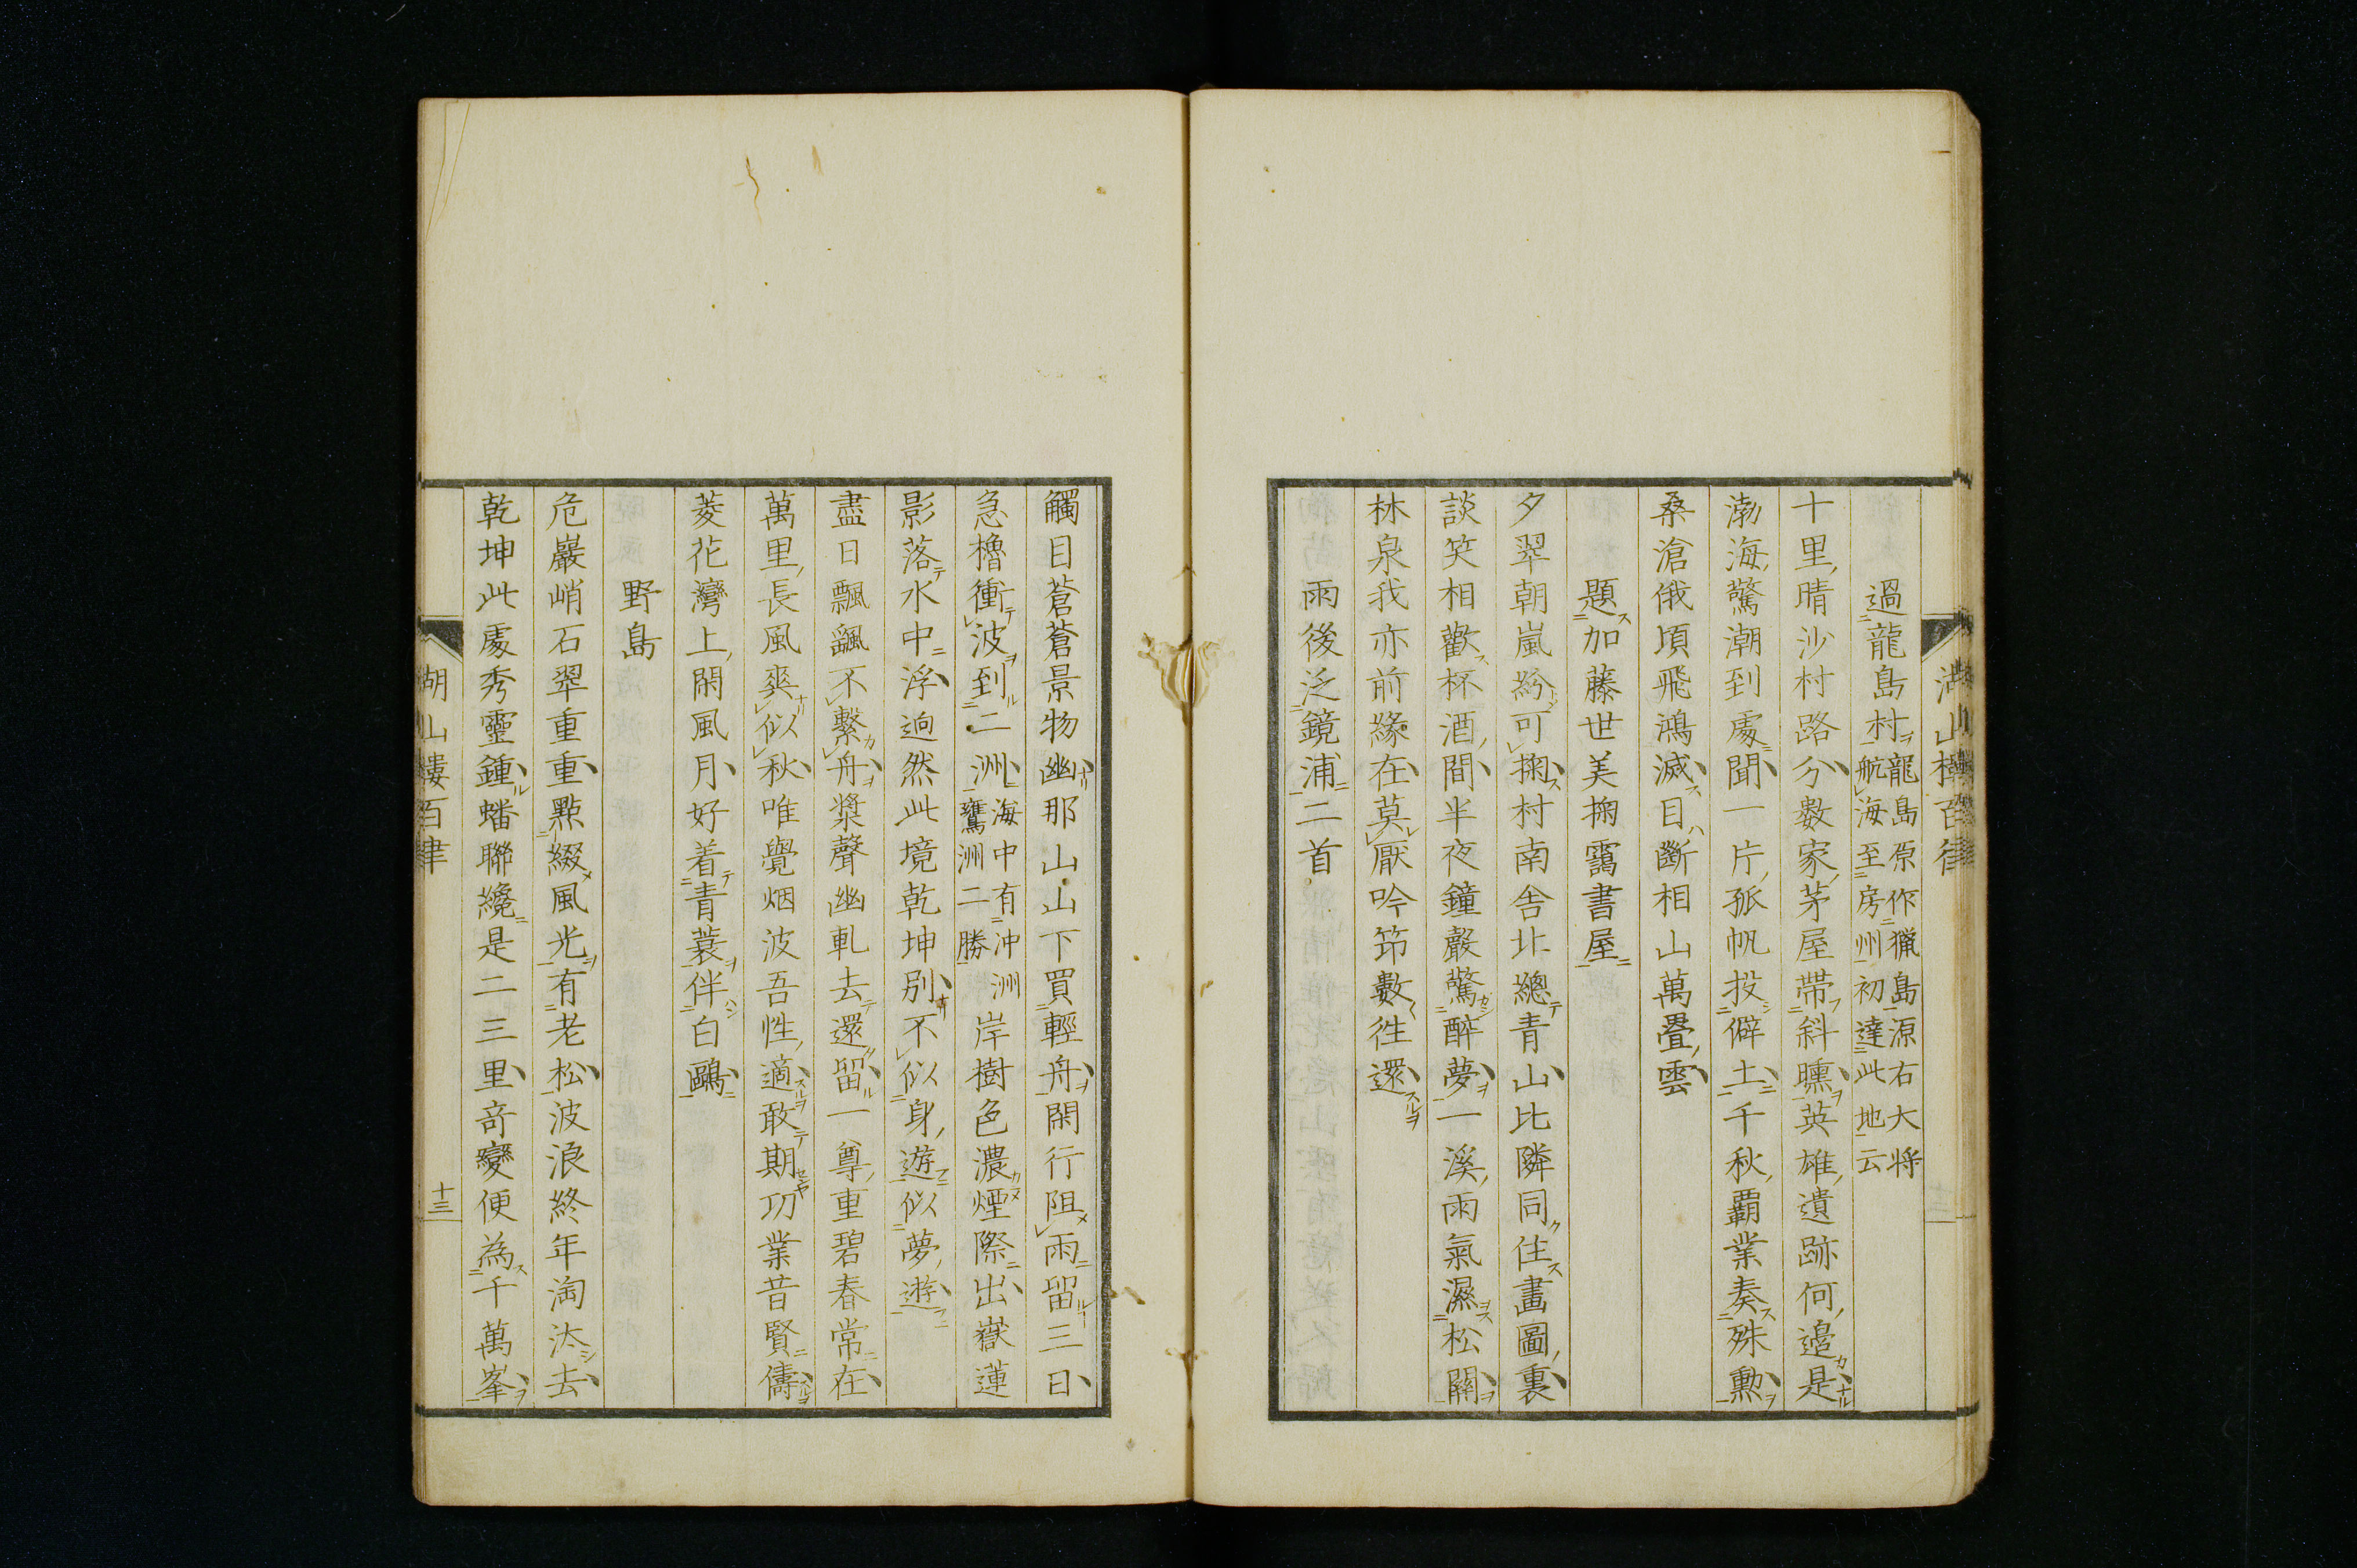 過龍島村龍島原作猟島源右大将航海至房州初達此地云
十里晴沙村路分數家茅屋帶斜曛英雄遺跡何邉是
渤海驚潮到處聞一片孤帆投僻土千秋覇業奏殊勲
桑滄俄頃飛鴻滅目斷相山萬疊雲
題加藤世美掬靄書屋
夕翠朝嵐紛可掬村南舎北總青山比隣同住畫圖裏
談笑相歡杯酒間半夜鐘聲驚醉夢一溪雨氣濕松關
林泉我亦前緣在莫厭吟筇數徃還
雨後泛鏡浦二首
觸目蒼蒼景物幽那山山下買輕舟閑行阻雨留三日
急櫓衝波到二洲海中有沖洲鷹洲二勝岸樹色濃煙際出嶽蓮
影落水中浮逈然此境乾坤別不似身遊似夢遊
盡日飄颻不繫舟槳聲幽軋去還留一尊重碧春常在
萬里長風爽似秋唯覺烟波吾性適敢期功業昔賢儔
菱花灣上閑風月好着青蓑伴白鷗
野島
危巖峭石翠重重點綴風光有老松波浪終年淘汰去
乾坤此處秀靈鍾蟠聯纔是二三里奇變便為千萬峯
湖山樓百律
十三